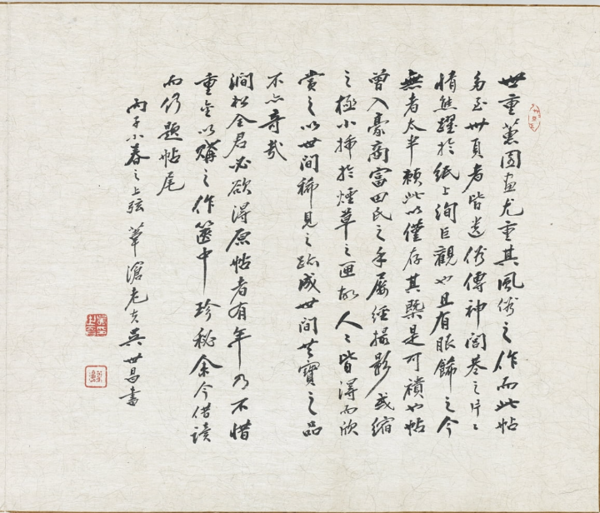 世重蕙園畫尤重其風俗之作而此帖
多至卅頁者皆遺俗傳神閭巷之片〻
情態躍於紙上洵巨觀也且有服飾之今
無者太半賴此以僅存其槩是可也帖
曾入豪商富田氏之手屢經撮影或縮
之極小揷於煙草之匣故人〻皆得而欣
賞之以世間稀見之跡成世間共寶之品
不亦奇哉
澗松全君必欲得原帖者有年乃不惜
重金以購之作篋中珍秘余今借讀
而仍題帖尾
丙子小春之上弦 葦滄老夫吳世昌書